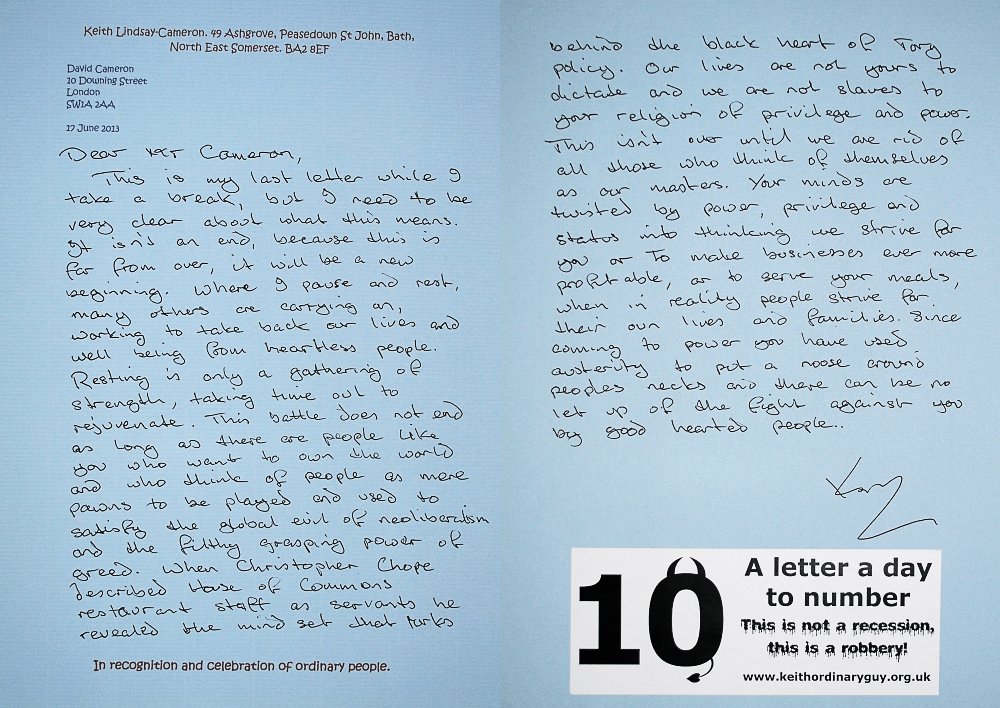 Keith Lindsay-Cameron. 49 Ashgrove, Peasedown St John, Bath,
North East Somerset. BA2 8EF
David Cameron
10 Downing Street
London
SW1A 2AA
17 June 2013
Dear Mr Cameron,
This is my last letter while I
take a break, but I need to be
very clear about what this means.
It isn't an end, because this is
far from over, it will be a new
beginning. Where I pause and rest,
many others are carrying on,
working to take back our lives and
well being from heartless people.
Resting is only a gathering of
strength, taking time out to
rejuvenate. This battle does not end
as long as there are people like
you who want to own the world
and who think of people as mere
pawns to be played and used to
satisfy the global evil of neoliberalism
and the filthy grasping power of
greed. When Christopher Chope
described House of Commons
restaurant staff as servants he
revealed the mind set that lurks
In recognition and celebration of ordinary people.
behind the black heart of Tory
policy. Our lives are not yours to
dictate and we are not slaves to
your religion of privilege and power.
This isn't over until we are rid of
all those who think of themselves
as our masters. Your minds are
twisted by power, privilege and
status into thinking we strive for
you or to make businesses ever more
profitable, or to serve your meals,
when in reality people strive for
their own lives and families. Since
coming to power you have used
austerity to put a noose around
peoples necks and there can be no
let up of the fight against you
by good hearted people..
10
A letter a day
to number
This is not a recession,
this is a robbery!
www.keithordinaryguy.org.uk